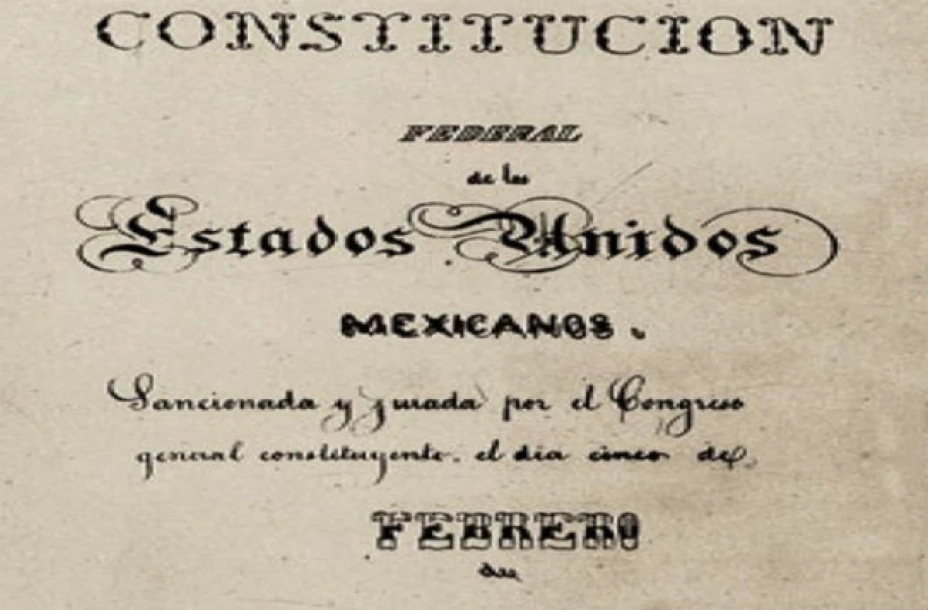 CONSTITUCION
FEDERAL
de los
Estados Unidos
MEXICANOS.
Sancionada y jurada por el Congreso
general constituyente, el dia cinco de
FEBRERO
de